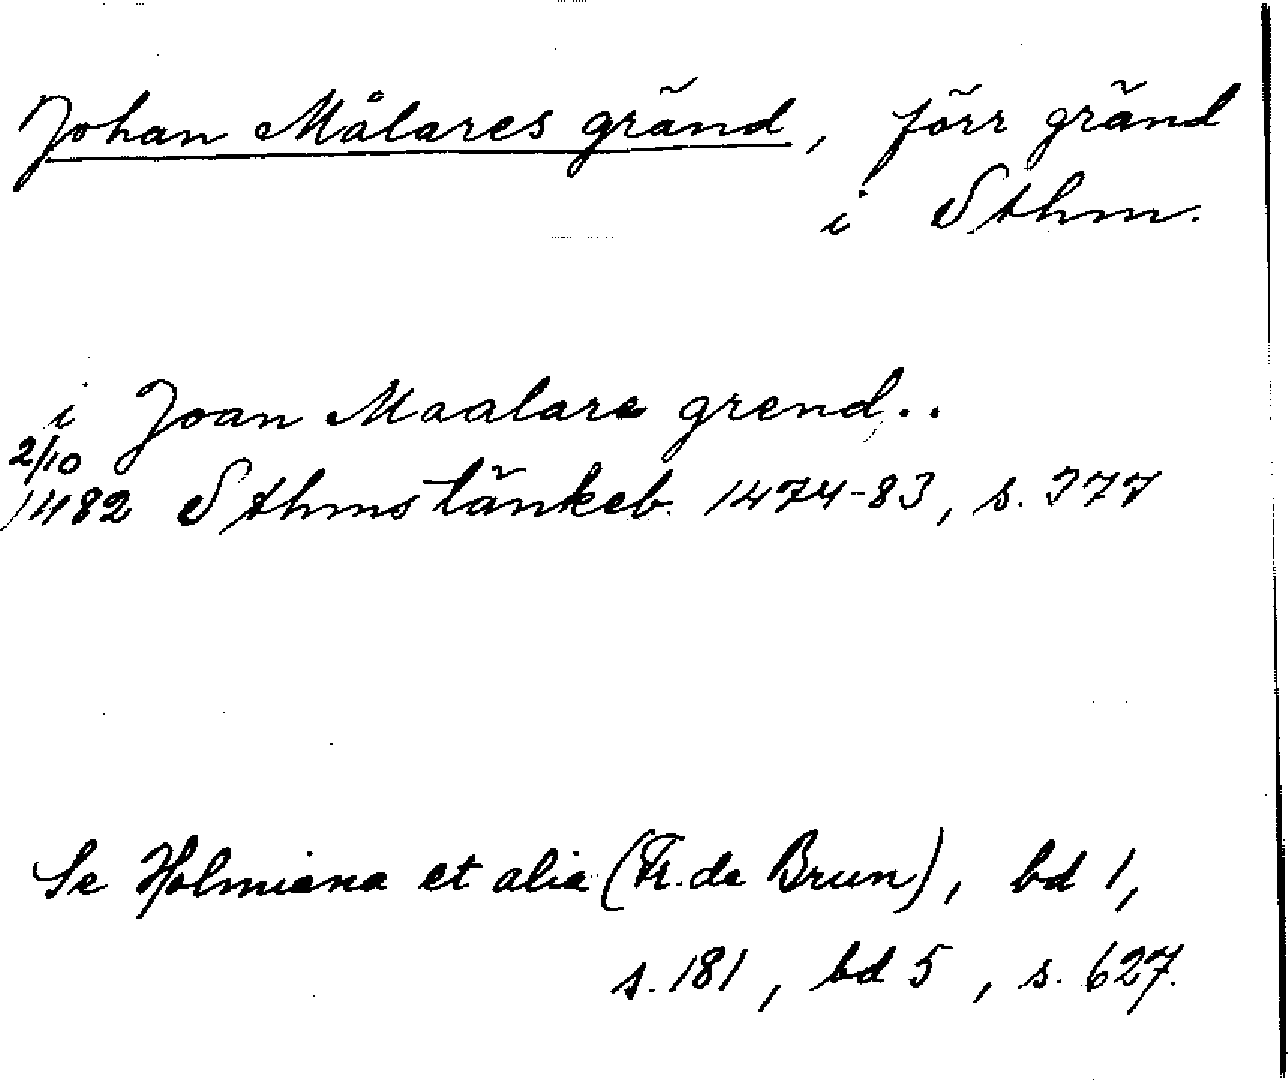 Johan Målares gränd, förr gränd
i Sthm.
i Joan Maalare grend..
2/10
1482 Sthms tänkeb. 1474-83, s. 377
Se Holmiana et alia (Fr. de Brun), bd 1,
s. 181, bd 5, s. 627.